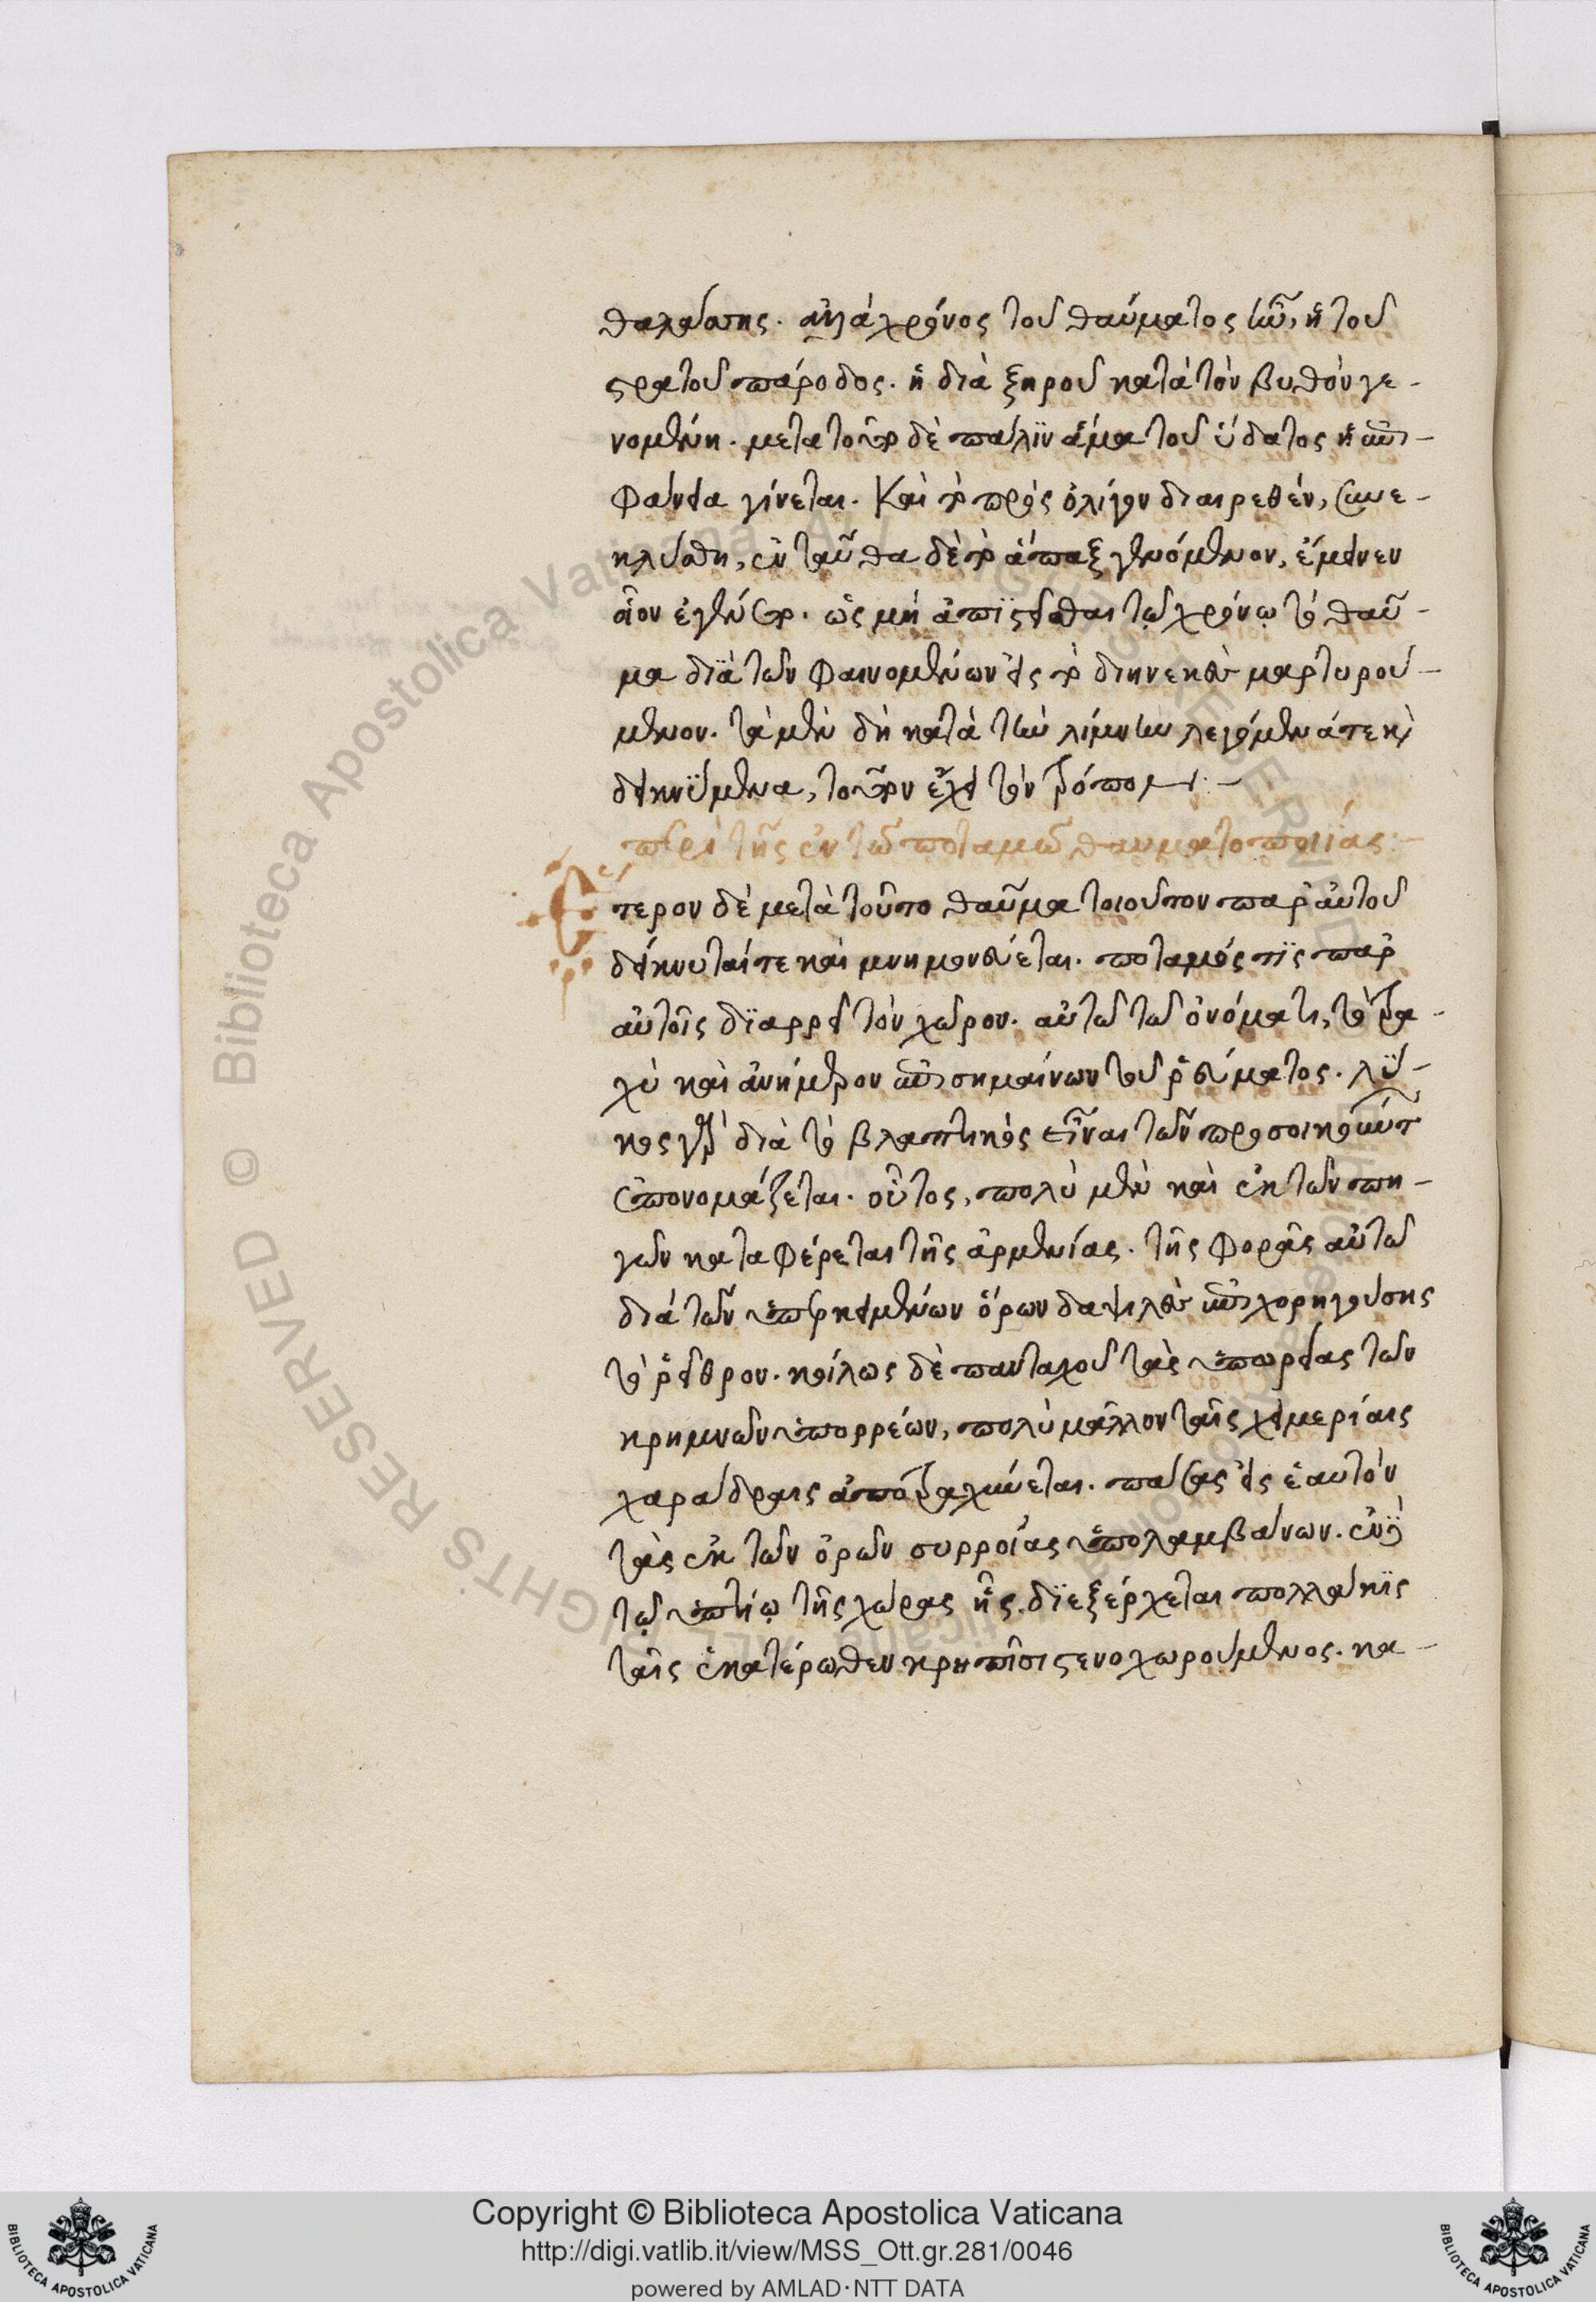 θαλάσσης. ἀλλὰ χρόνος τοῦ θαύματος ἦν, ἡ τοῦ
στρατοῦ πάροδος. ἡ διὰ ξηροῦ κατὰ τὸν βυθὸν γε-
νομένη. μετὰ τοῦτο δὲ πάλϊν ἅμα τοῦ ὕδατος ἡ ἐπι-
φάνεια γίνεται. Καὶ τὸ πρὸς ὀλίγον διαιρεθέν, συνε-
κλύσθη, ἐνταῦθα δὲ τὸ ἅπαξ γενόμενον, ἔμεινεν
οἷον ἐγένετο. ὡς μὴ ἀπϊστεῖσθαι τῷ χρόνῳ τὸ θαῦ-
μα διὰ τῶν φαινομένων εἰς τὸ διηνεκὲς μαρτυρού-
μενον. τὰ μὲν δὴ κατὰ τὴν λίμνην λεγόμενά τε κὶ
δεικνύμενα, τοῦτον ἔχει τὸν τρόπον:-
περὶ τῆς ἐν τῶ ποταμῶ θαυματοποιίας:-
Ἕτερον δὲ μετὰ τοῦτο θαῦμα τοιοῦτον παρ' αὐτοῦ
δείκνυταί τε καὶ μνημονεύεται. ποταμός τϊς παρ'
αὐτοῖς δϊαρρεῖ τὸν χῶρον. αὐτῶ τῶ ὀνόματι, τὸ τρα-
χὺ καὶ ἀνήμερον ἐπισημαίνων τοῦ ῥεύματος. λύ-
κος γὰρ διὰ τὸ βλαπτικὸς εἶναι τῶν προσοικούντων
ἐπονομάζεται. οὗτος, πολὺ μὲν καὶ ἐκ τῶν πη-
γῶν καταφέρεται τῆς ἀρμενίας. τῆς φορᾶς αὐτῶ
διὰ τῶν ὑπερκειμένων ὅρων δαψιλὲς ἐπιχορηγούσης
τὸ ῥεῖθρον. κοίλως δὲ πανταχοῦ τὰς ὑπωρείας τῶν
κρημνῶν ὑπορρέων, πολὺ μᾶλλον ταῖς χειμερίαις
χαράδραις ἀποτραχύνεται. πάσας εἰς ἑαυτὸν
τὰς ἐκ τῶν ὀρῶν συρροίας ὑπολαμβάνων. ἐν δὲ
τῷ ὑπτίῳ τῆς χώρας ἧς δϊεξέρχεται πολλάκϊς
ταῖς ἑκατέρωθεν κρηπῖσι στενοχωρούμενος. κα-